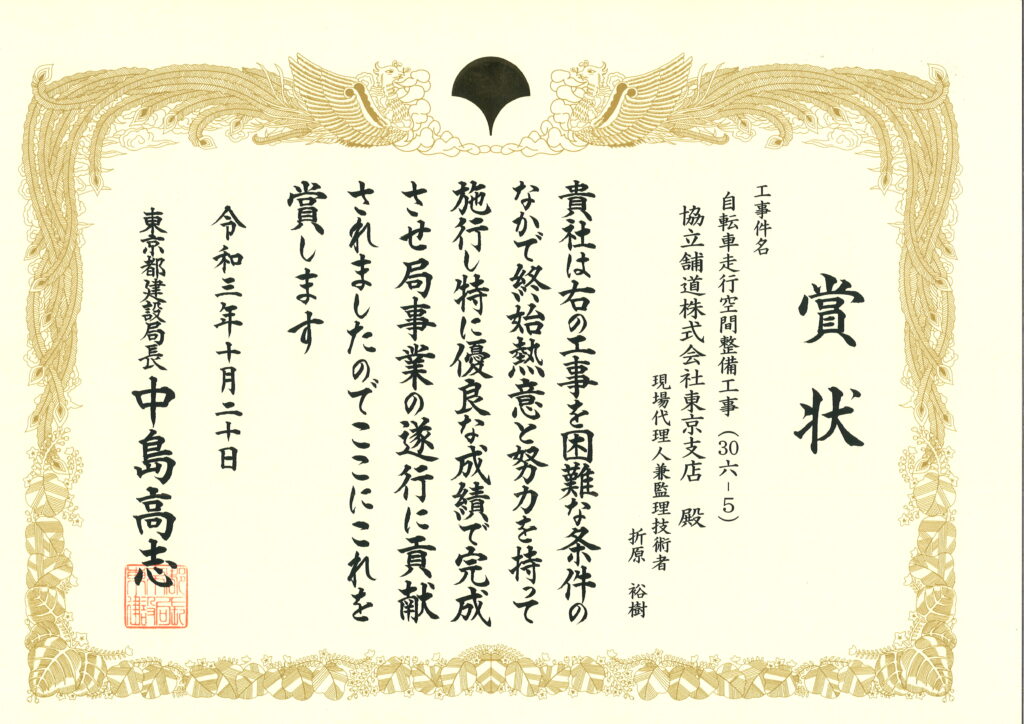 賞状
工事件名
自転車走行空間整備工事（30六-5）
協立舗道株式会社東京支店 殿
現場代理人兼監理技術者
折原 裕樹
貴社は右の工事を困難な条件の
なかで終始熱意と努力を持って
施行し特に優良な成績で完成
させ局事業の遂行に貢献
されましたのでここにこれを
賞します
令和三年十月二十日
東京都建設局長 中島高志